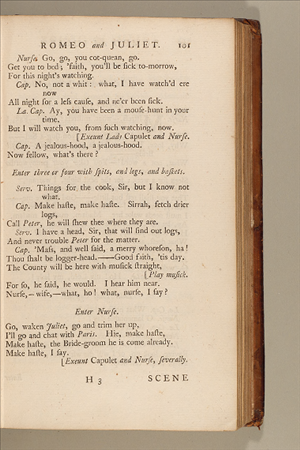 ROMEO and JULIET. 101
Nurse. Go, go, you cot-quean, go.
Get you to bed; 'faith, you'll be ſick to-morrow,
For this night's watching.
Cap. No, not a whit: what, I have watch'd ere
now
All night for a leſs cauſe, and ne'er been ſick.
La. Cap. Ay, you have been a mouſe-hunt in your
time,
But I will watch you, from ſuch watching, now.
[Exeunt Lady Capulet and Nurſe.
Cap. A jealous-hood, a jealous-hood.
Now fellow, what's there?
Enter three or four with ſpits, and logs, and baſkets.
Serv. Things for the cook, Sir, but I know not
what.
Cap. Make haſte, make haſte. Sirrah, fetch drier
logs,
Call Peter, he will ſhew thee where they are.
Serv. I have a head, Sir, that will find out logs,
And never trouble Peter for the matter.
Cap. 'Maſs, and well ſaid, a merry whoreſon, ha!
Thou ſhalt be logger-head.——Good faith, 'tis day.
The County will be here with muſick ſtraight,
[Play muſick.
For ſo, he ſaid, he would. I hear him near.
Nurſe,—wife,—what, ho! what, nurſe, I ſay?
Enter Nurſe.
Go, waken Juliet, go and trim her up,
I'll go and chat with Paris. Hie, make haſte,
Make haſte, the Bride-groom he is come already.
Make haſte, I ſay.
[Exeunt Capulet and Nurſe, ſeverally.
H 3 SCENE